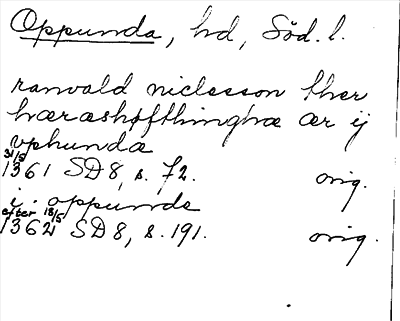 Oppunda, hd, Söd. l.
ranvald niclesson ther
hæræshøfthinghæ ær ij
vphundæ
31/5
1361 SD 8, s. 72. orig.
i oppunde
efter 18/5
1362 SD 8, s. 191. orig.